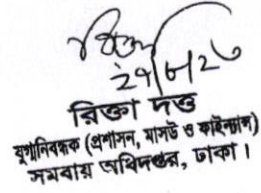 ২৭/৮/২৩
রিক্তা দত্ত
যুগ্মনিবন্ধক (প্রশাসন, মাসউ ও ফাইন্যান্স)
সমবায় অধিদপ্তর, ঢাকা।